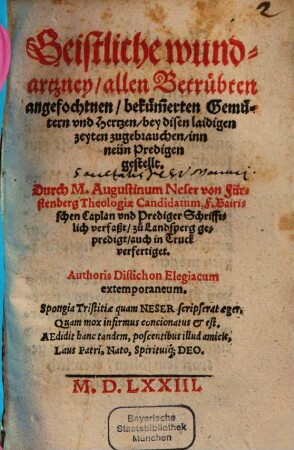 2
Geistliche wund-
artzney / allen Betrübten
angefochtnen / bekümerten Gemü-
tern vnd Hertzen / bey disen laidigen
zeyten zugebrauchen / inn
neün Predigen
gestellt.
Durch M. Augustinum Neser von Für-
stenberg Theologiæ Candidatum, F. Bairi-
schen Caplan vnd Prediger Schrifft-
lich verfaßt / zů Landsperg ge-
predigt / auch in Truck
verfertiget.
Authoris Distichon Elegiacum
extemporaneum.
Spongia Tristitiæ quam NESER scripserat æger,
Quam mox infirmus concionatus & est.
AEdidit hanc tandem, poscentibus illud amicis,
Laus Patri, Nato, Spirituiq; DEO.
M. D. LXXIII.
Bayerische
Staatsbibliothek
München